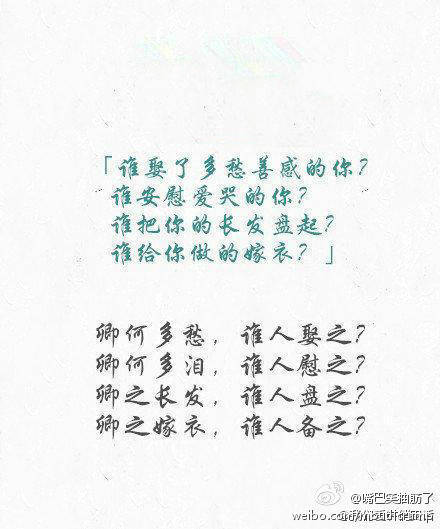 「谁娶了多愁善感的你?
谁安慰爱哭的你?
谁把你的长发盘起?
谁给你做的嫁衣?」
卿何多愁,谁人娶之?
卿何多泪,谁人慰之?
卿之长发,谁人盘之?
卿之嫁衣,谁人备之?
@嘴巴笑抽筋了
weibo.com/